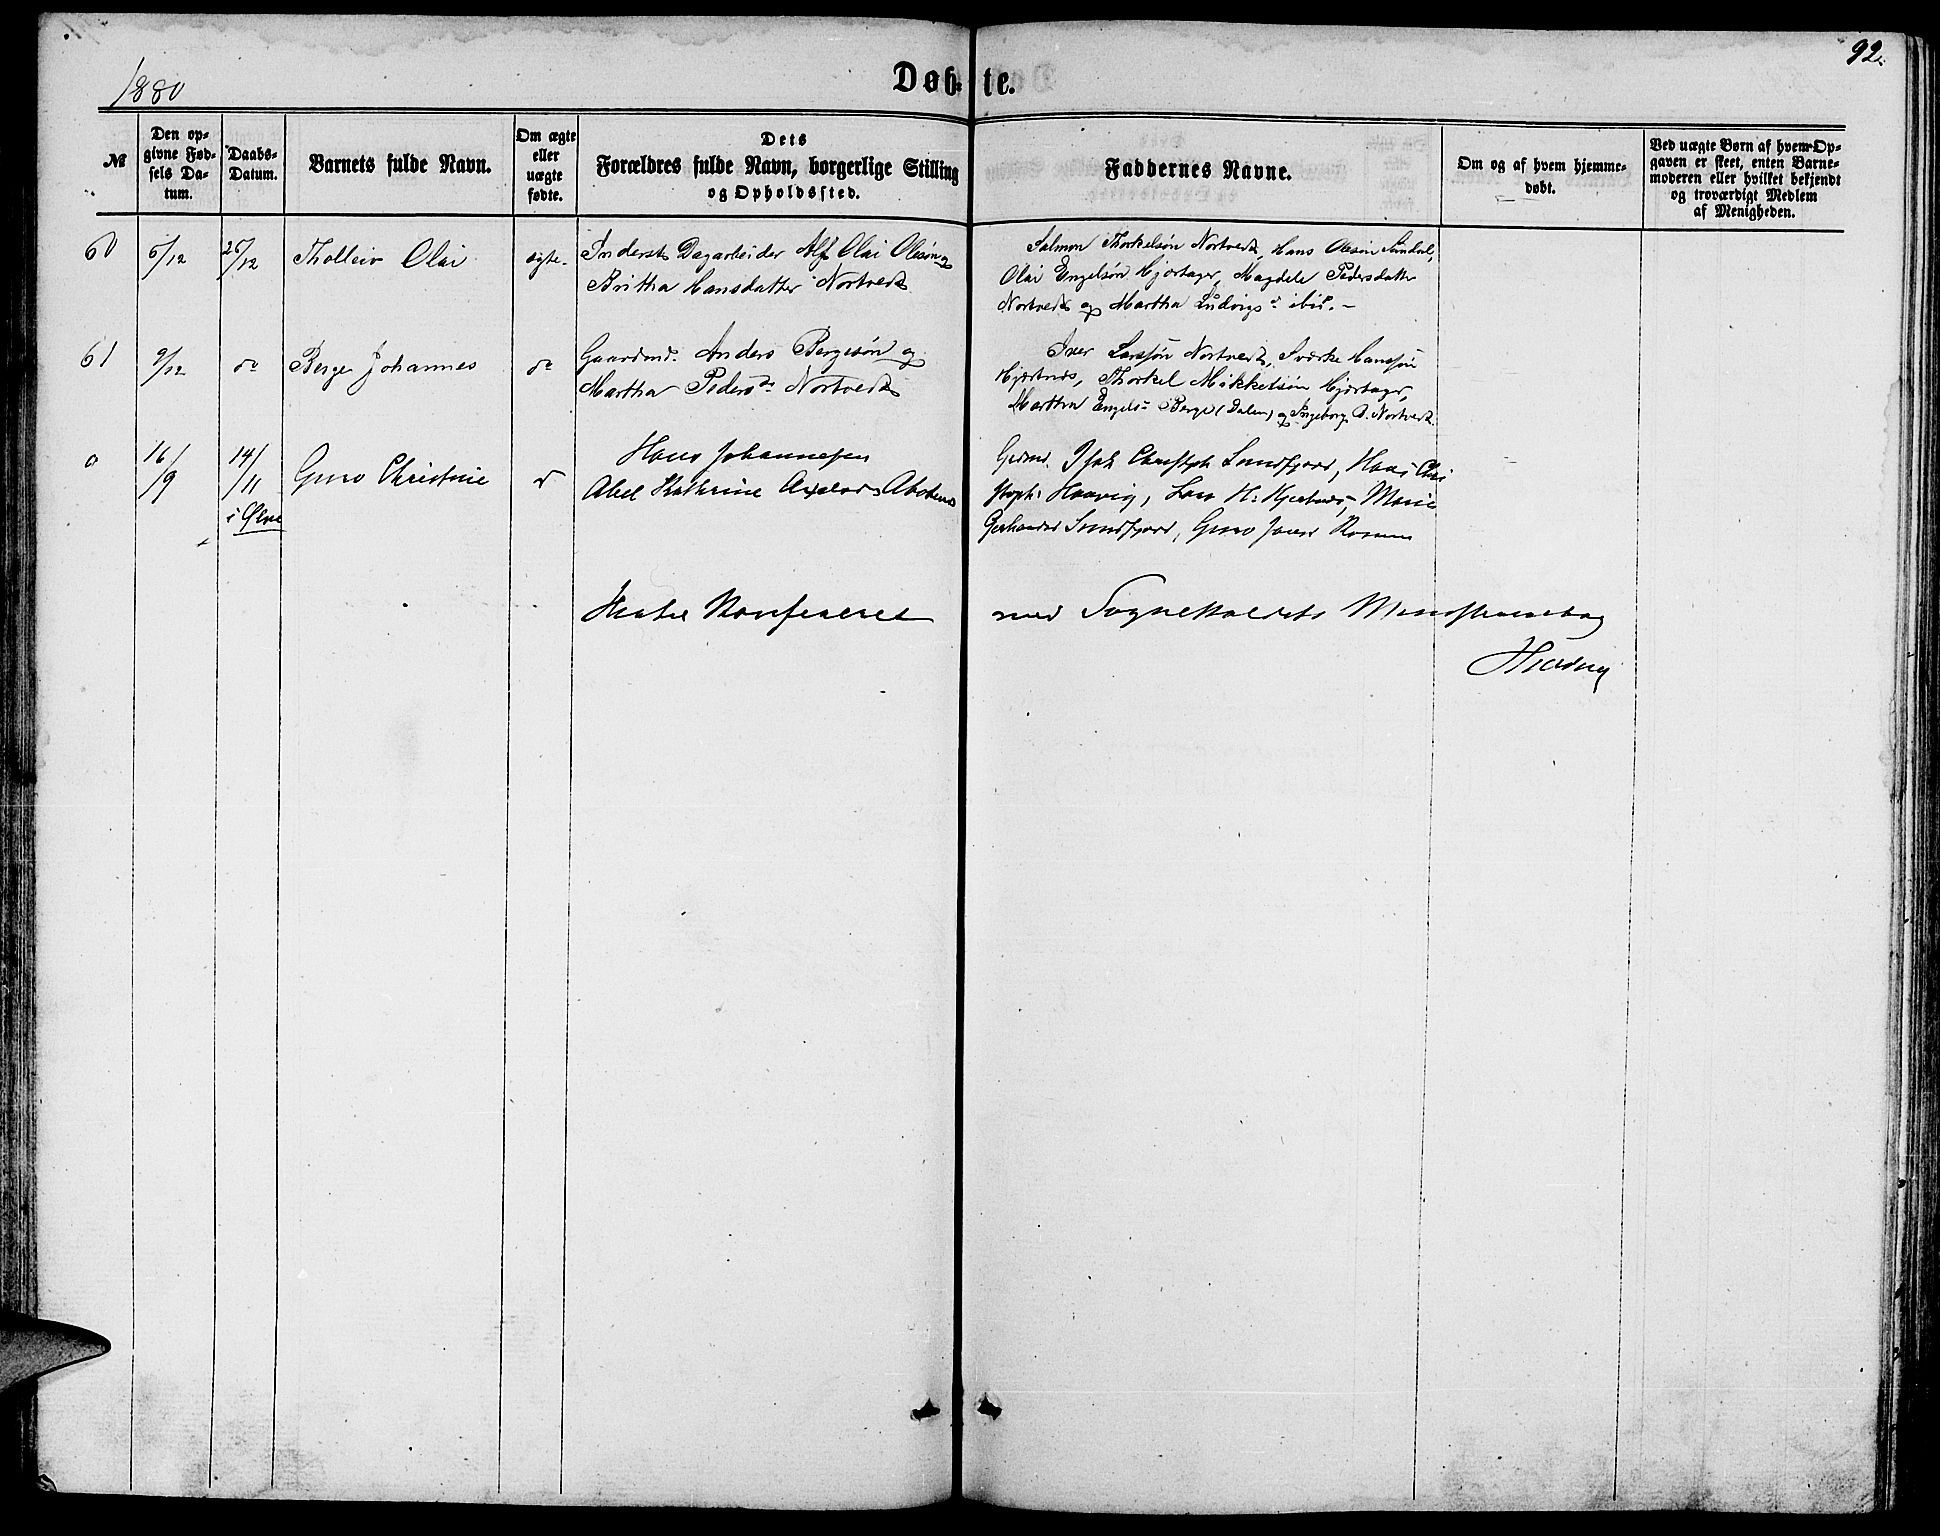 92.
1880
Døbte.
№
Den opgivne Fødsels Datum.
Daabs-Datum.
Barnets fulde Navn.
Om ægte eller uægte fødte.
Dets Forældres fulde Navn, borgerlige Stilling og Opholdssted.
Faddernes Navne.
Om og af hvem hjemmedøbt.
Ved uægte Børn af hvem Opgaven er skeet, enten Barnemoderen eller hvilket bekjendt og troværdigt Medlem af Menigheden.
60 6/12 26/12 Tholleiv Olai ægte. Inderst Dagarbeider Alf Olai Olesøn og
Britha Hansdatter Nortvedt
Salmon Thorkelsøn Nortvedt, Hans Olesøn
Olai Engelsøn Hjortager, Magdele Pedersdatter
Nortvedt og Martha Ludvigs d ibid. -
61 9/12 do Berge Johannes do Gaardmd. Anders Bergesøn og
Martha Pedersdr Nortvedt
Iver Larssøn Nortvedt, Sværke Hanssøn
Hjertnæs, Thorkel Mikkelsøn Hjortager,
Martha Engels- Berge (Dalen) og Ingeborg B. Nortvedt.
0 16/9 14/11 i Ølve Guro Christine d Hans Johannessen
Abel Kathrine
Grdmd. Isak Christoph Sundfjord, Hans Chri
stoph. Haavig, Lars H. Hjertnes, Marie
Sundfjord, Guro
Konfereret med Sognekaldets Ministerialbog